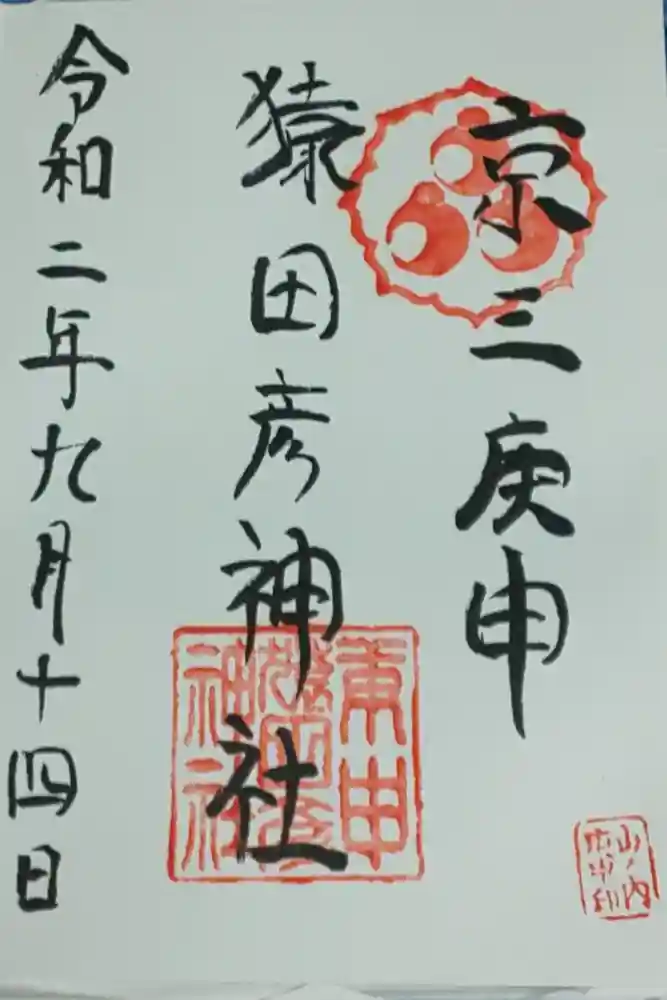 京三庚申
猿田彦神社
令和二年九月十四日
庚申
猿田彦
神社
山ノ内